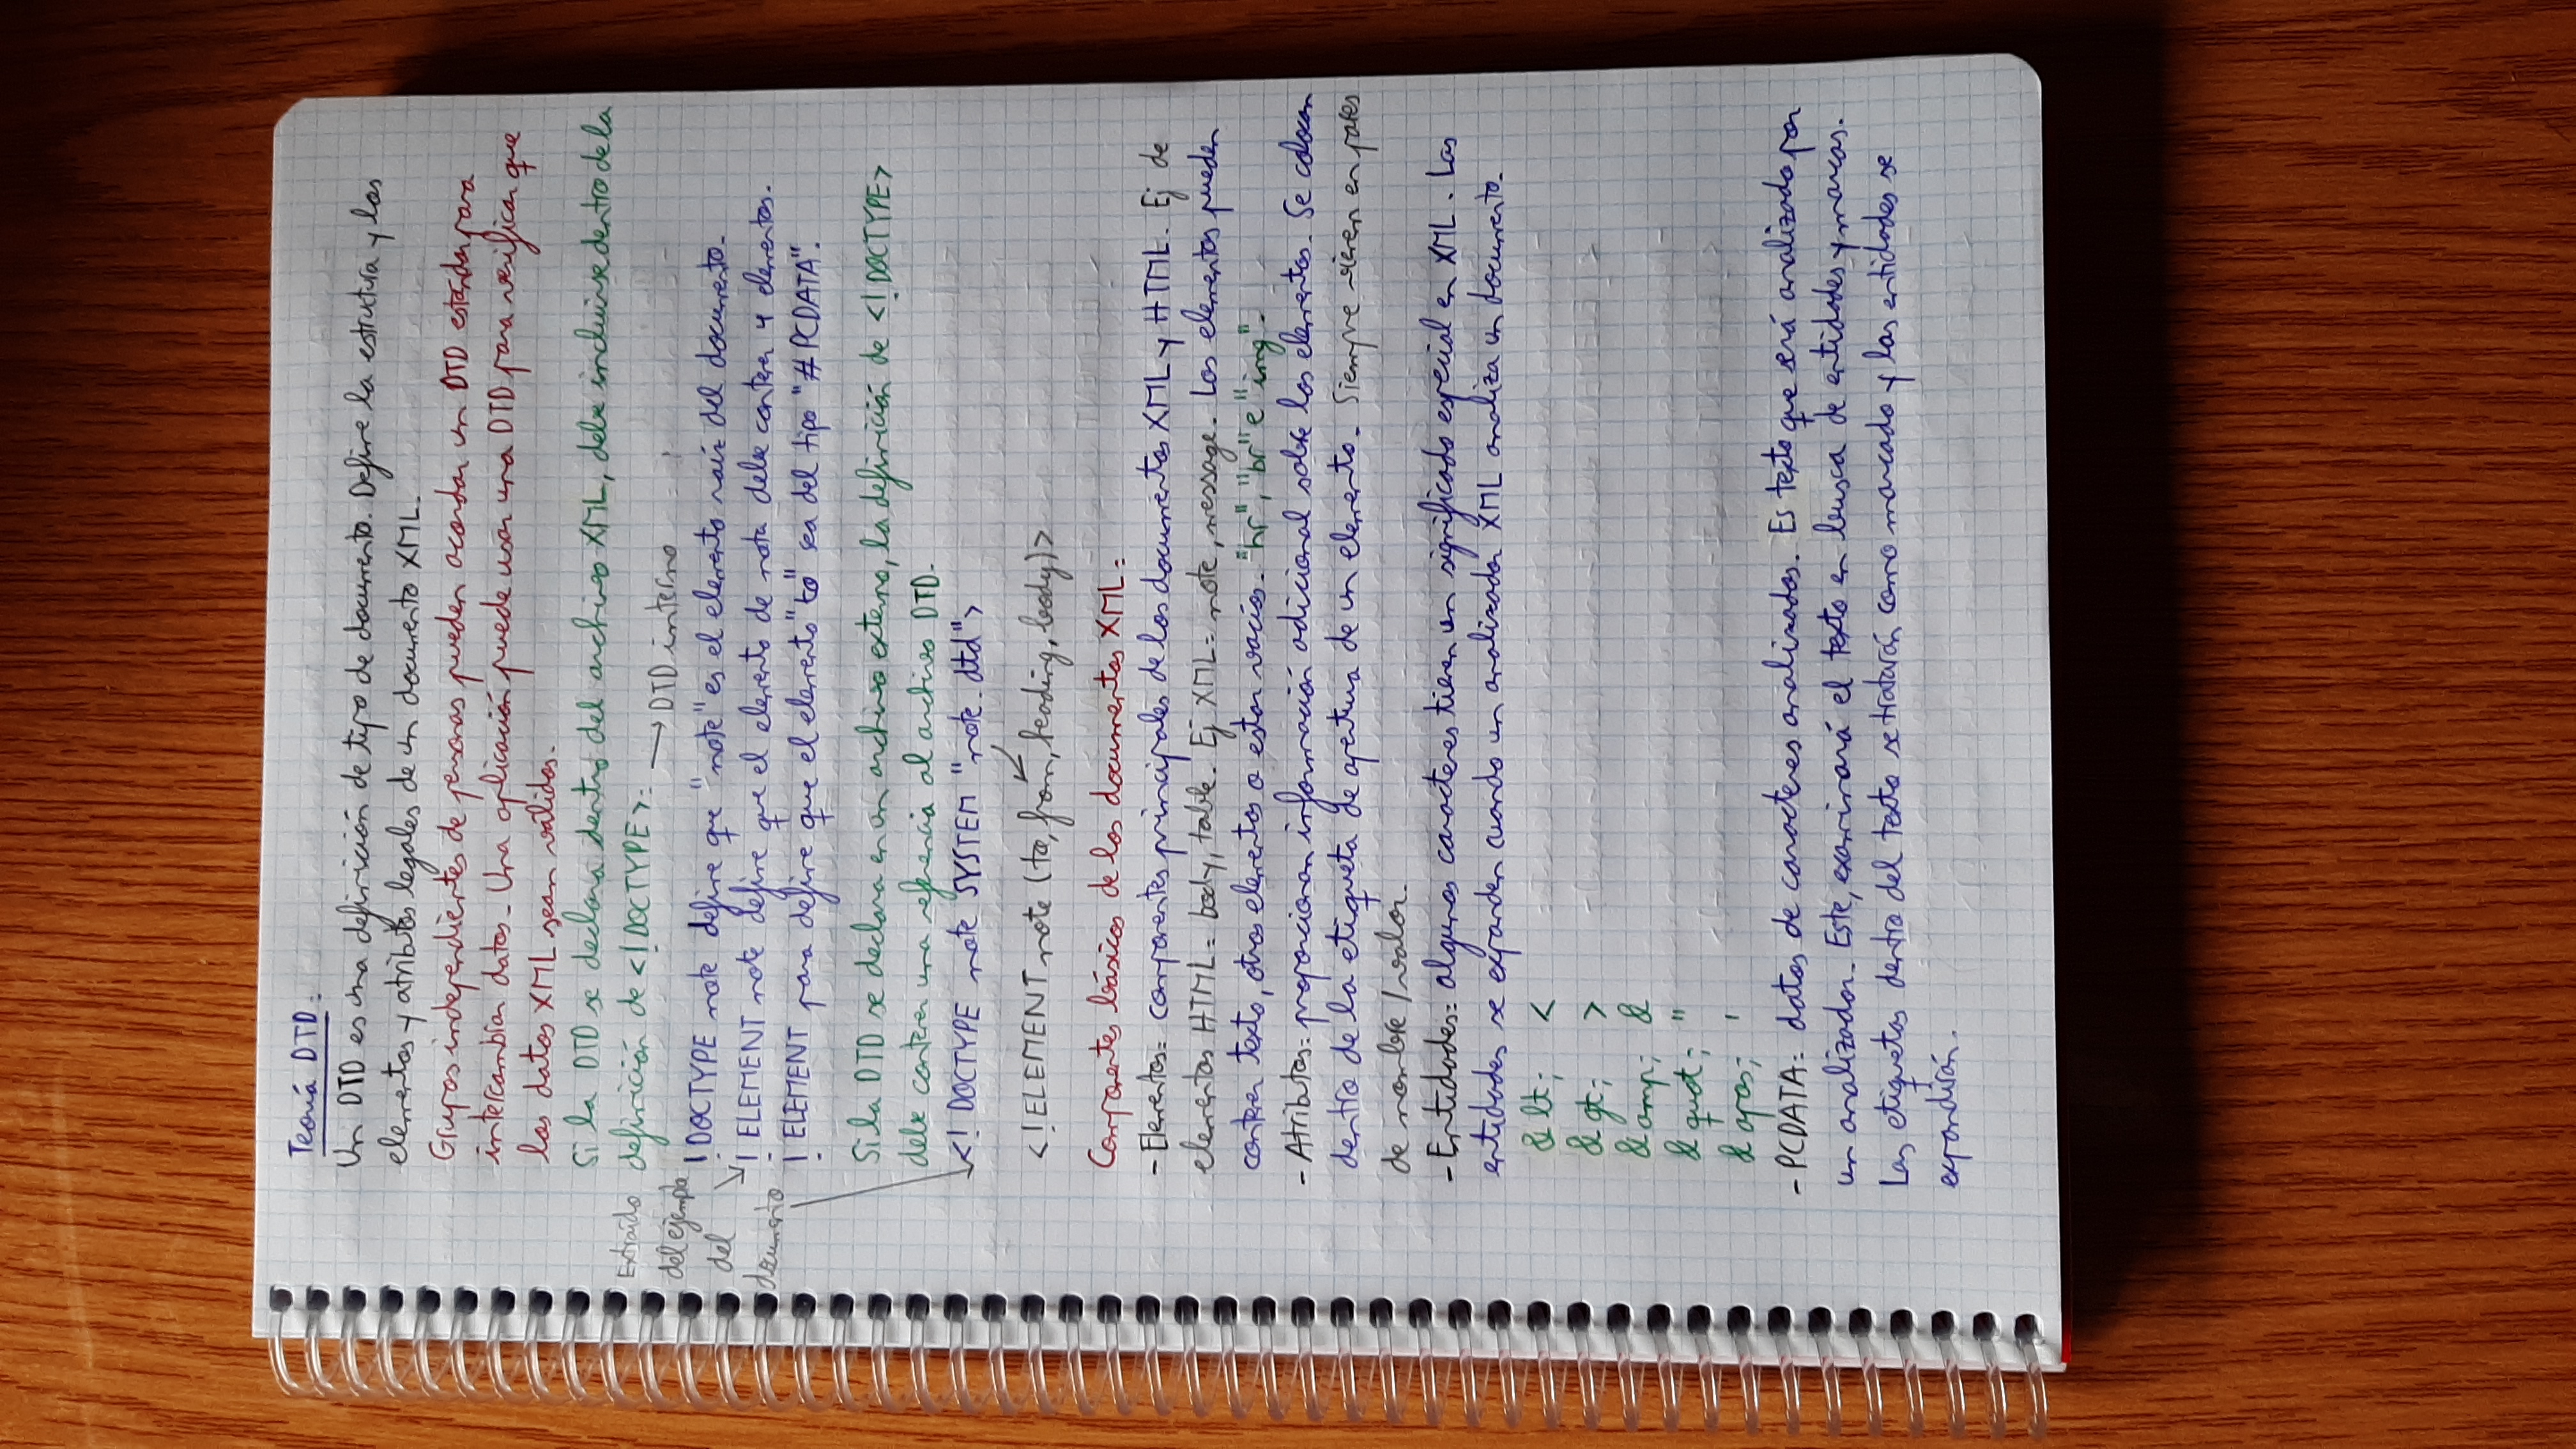 Teoría DTD:
Un DTD es una definición de tipo de documento. Define la estructura y los
elementos y atributos legales de un documento XML.
Grupos independientes de personas pueden acordar un DTD estándar para
intercambiar datos. Una aplicación puede usar una DTD para verificar que
los datos XML sean válidos.
Si la DTD se declara dentro del archivo XML, debe incluirse dentro de la
definición de <!DOCTYPE>:
→ DTD interno
Extraído
del ejemplo
del
documento
!DOCTYPE note define que "note" es el elemento raíz del documento.
! ELEMENT note define que el elemento de nota debe contener 4 elementos.
! ELEMENT para define que el elemento "to" sea del tipo "#PCDATA".
Si la DTD se declara en un archivo externo, la definición de <!DOCTYPE>
debe contener una referencia al archivo DTD.
<! DOCTYPE note SYSTEM "note.dtd">
<!ELEMENT note (to, from, heading, body)>
Componentes básicos de los documentos XML:
- Elementos: componentes principales de los documentos XML y HTML. Ej de
elementos HTML: body, table. Ej XML: note, message. Los elementos pueden
contener texto, otros elementos o estar vacíos. "hr", "br" e "img".
- Atributos: proporcionan información adicional sobre los elementos. Se colocan
dentro de la etiqueta de apertura de un elemento. Siempre vienen en pares
de nombre/valor.
- Entidades: algunos caracteres tienen un significado especial en XML. Las
entidades se expanden cuando un analizador XML analiza un documento.
&lt; <
&gt; >
&amp; &
&quot; "
&apos; '
- PCDATA: datos de caracteres analizados. Es texto que será analizado por
un analizador. Este, examinará el texto en busca de entidades y marcas.
Las etiquetas dentro del texto se tratarán como marcado y las entidades se
expandirán.